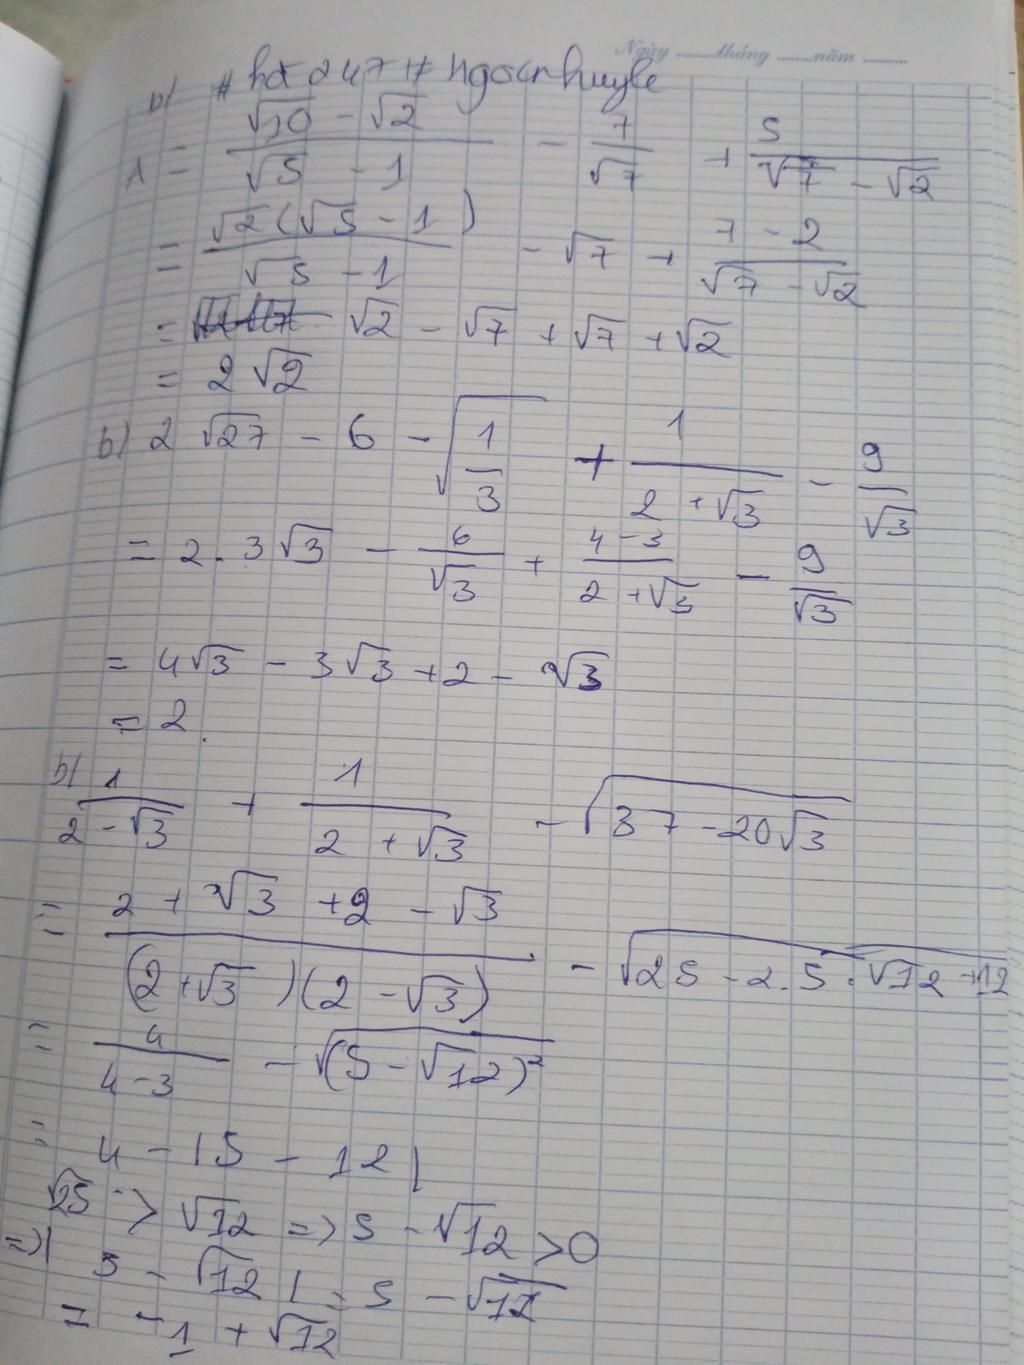 Ngày ........ tháng ...... năm ........
b) # hd 247 # ngocnhuyle
A = (√10 - √2)/(√5 - 1) - 7/√7 + 5/(√7 - √2)
= √2(√5 - 1)/(√5 - 1) - √7 + (7 - 2)/(√7 - √2)
= √2 - √7 + √7 + √2
= 2√2
b) 2√27 - 6 - √(1/3) + 1/(2 + √3) - 9/√3
= 2.3√3 - 6/√3 + (4-3)/(2 + √3) - 9/√3
= 4√3 - 3√3 + 2 - √3
= 2.
b) 1/(2 - √3) + 1/(2 + √3) - √(37 - 20√3)
= (2 + √3 + 2 - √3)/((2 + √3)(2 - √3)) - √(25 - 2.5.√12 + 12)
= 4/(4-3) - √((5 - √12)²)
= 4 - |5 - 12|
√25 > √12 => 5 - √12 > 0
=> |5 - √12| = 5 - √12
= -1 + √12